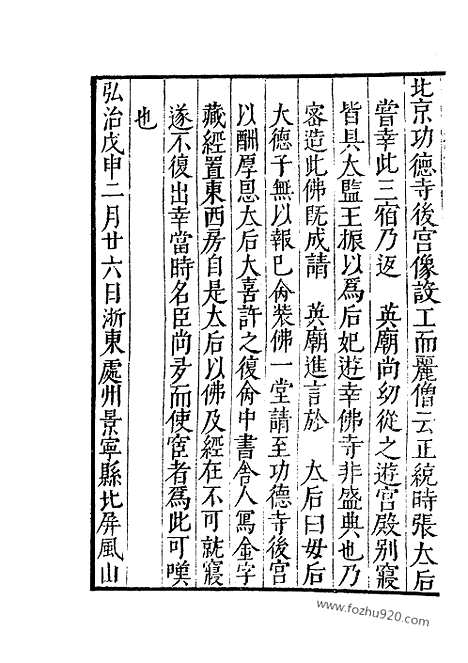 北京功德寺後宫像設工而麗僧云正統時張太后
嘗幸此三宿乃返　英廟尚幼從之遊宫殿别寢
皆具太監王振以爲后妃遊幸佛寺非盛典也乃
宻造此佛旣成請　英廟進言於　太后曰母后
大德子無以報已命裝佛一堂請至功德寺後宫
以酬厚恩太后大喜許之復命中書舎人冩金字
藏經置東西房自是太后以佛及經在不可就寢
遂不復出幸當時名臣尚多而使宦者爲此可嘆
也
弘治戊申二月廿六日浙東處州景寧縣北屏風山
www.fozhu920.com